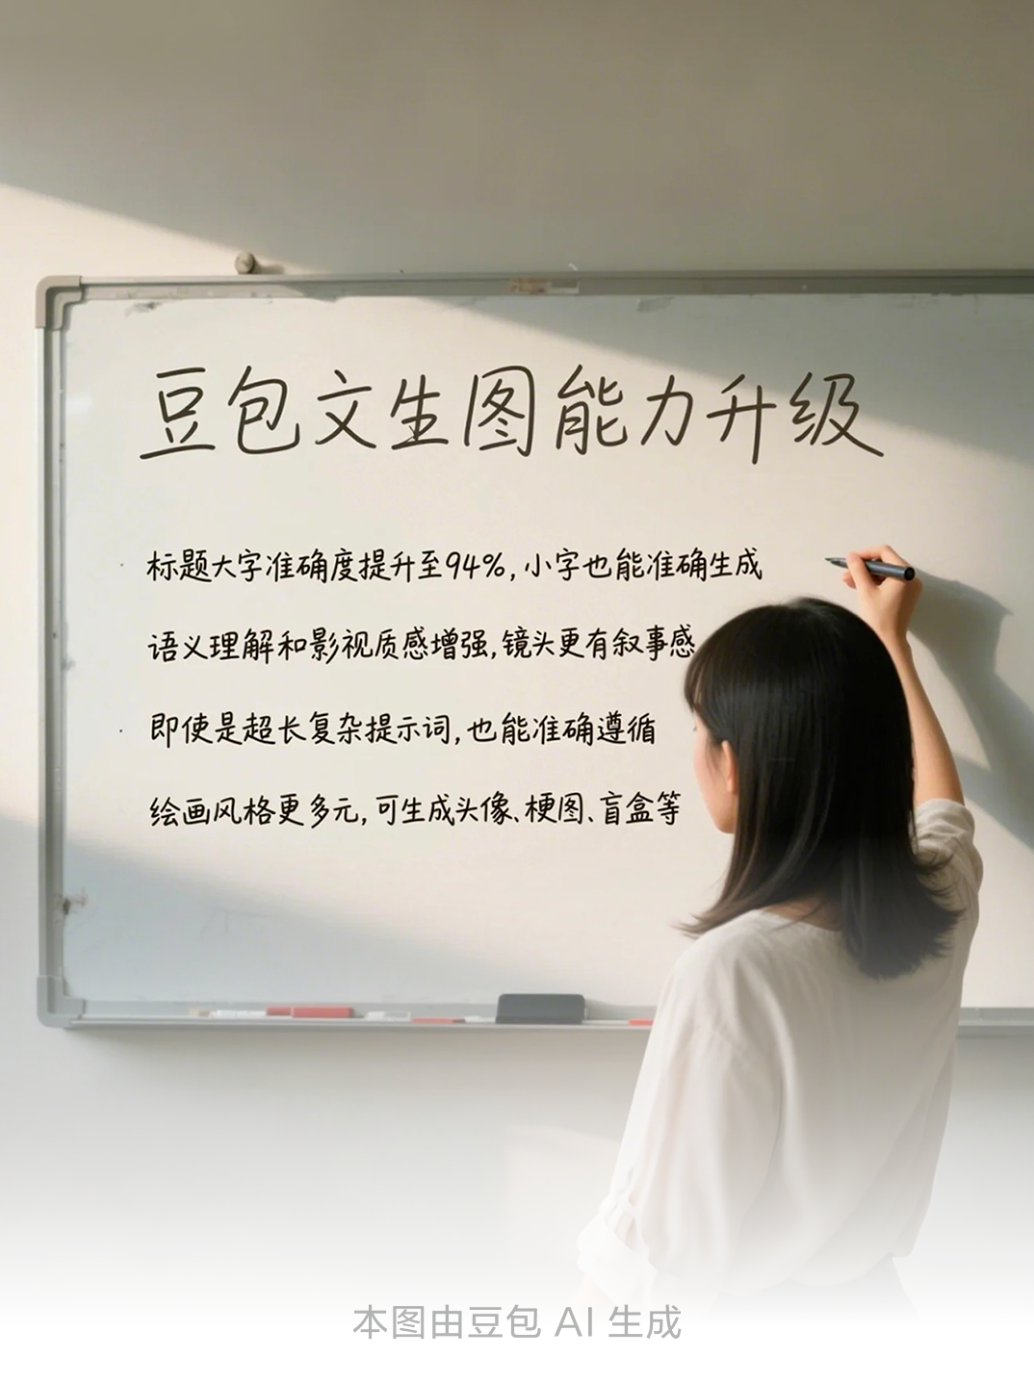 豆包文生图能力升级
标题大字准确度提升至94%,小字也能准确生成
语义理解和影视质感增强,镜头更有叙事感
即使是超长复杂提示词,也能准确遵循
绘画风格更多元,可生成头像、梗图、盲盒等
本图由豆包 AI 生成